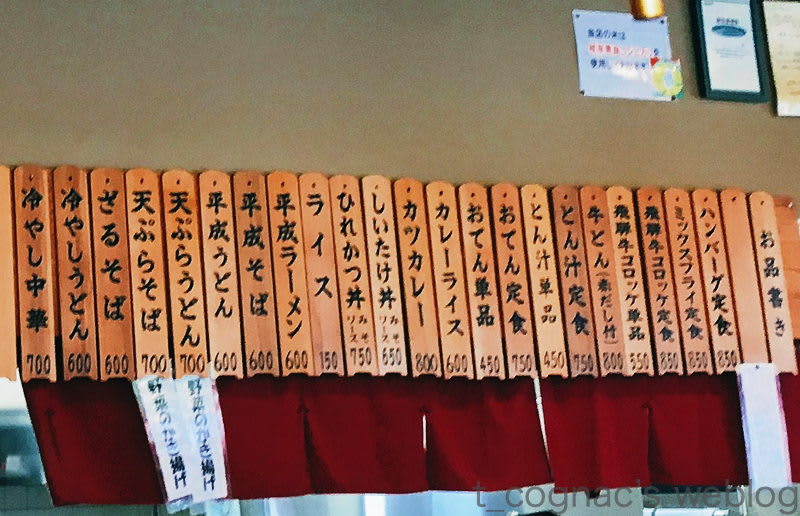 お品書き
ハンバーグ定食 850
ミックスフライ定食 850
飛騨牛コロッケ定食 850
飛騨牛コロッケ単品 550
牛どん(素だし付) 800
とん汁定食 750
とん汁単品 450
おでん定食 750
おでん単品 450
カレーライス 600
カツカレー 800
しいたけ丼 みそ ソース 650
ひれかつ丼 みそ ソース 750
ライス 150
平成ラーメン 600
平成そば 600
平成うどん 600
天ぷらうどん 700
天ぷらそば 700
ざるそば 600
冷やしうどん 600
冷やし中華 700
野菜のかき揚げ
野菜のかき揚げ
当店の米は
使用して
t_cognac's weblog